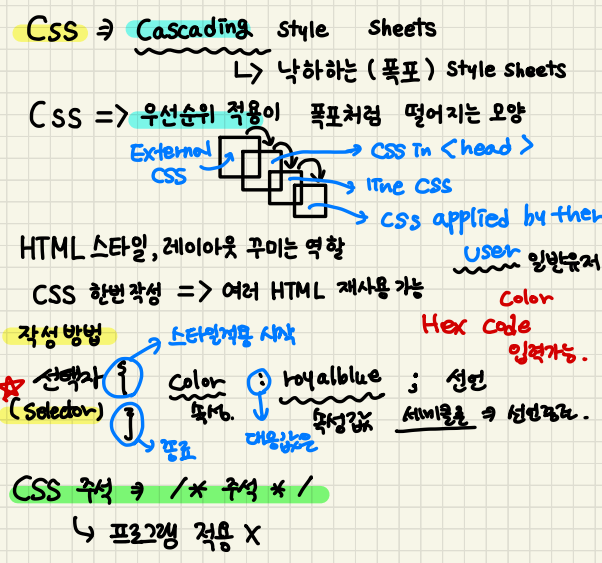 Css ⇒ Cascading style sheets
↳ 낙하하는 (폭포) style sheets
Css => 우선순위 적용이 폭포처럼 떨어지는 모양
External CSS
CSS in <head>
line CSS
CSS applied by ther user
일반유저
HTML 스타일, 레이아웃 꾸미는 역할
CSS 한번 작성 => 여러 HTML 재사용 가능
Color
Hex code
입력가능.
작성방법
스타일적용 시작
선택자 { color : royalblue ; 선언
(Selector) } 속성. 속성값 세미콜론 ⇒ 선언종료.
종료
대응값은
CSS 주석 ⇒ /* 주석 */
↳ 프로그램 적용 X